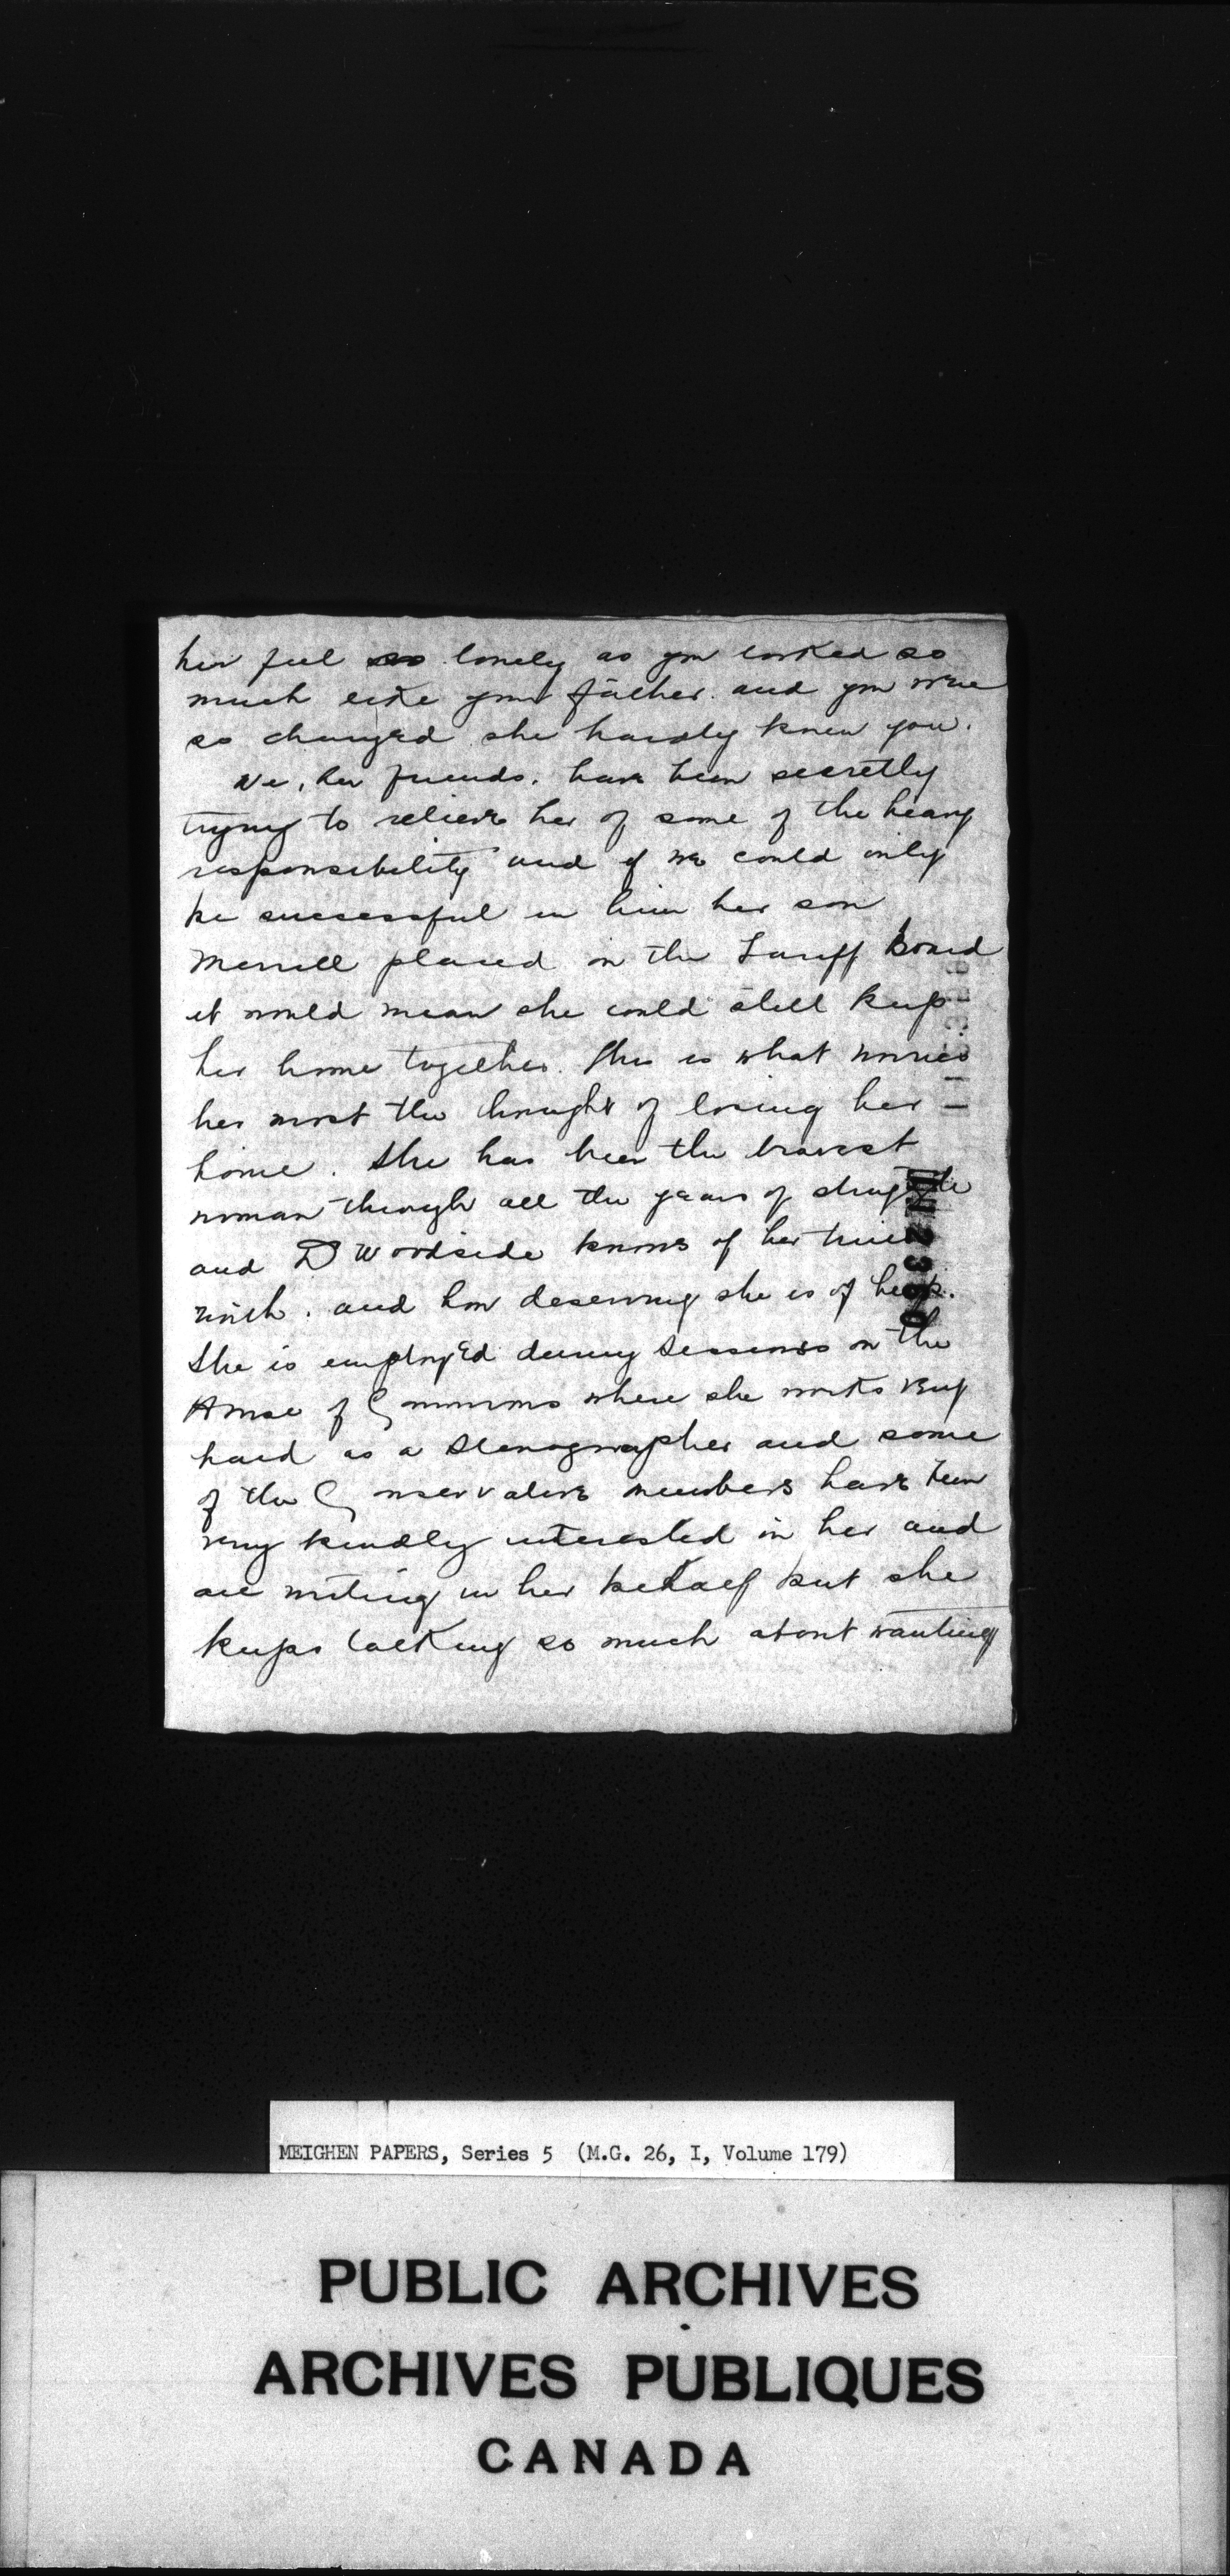 her feel so lonely as you looked so
much like your father. and you were
so changed she hardly knew you.
We, her friends, have been secretly
trying to relieve her of some of the heavy
responsibility and if we could only
be successful in him her son
Merrill placed on the Tariff Board
it would mean she could still keep
her home together. This is what worries
her most the thought of losing her
home. She has been the bravest
woman through all the years of struggle
and Dr Woodside knows of her true
worth. and how deserving she is of help.
She is employed during sessions in the
House of Commons where she works very
hard as a stenographer and some
of the Conservative members have been
very kindly interested in her and
are writing in her behalf but she
keeps talking so much about wanting
MEIGHEN PAPERS, Series 5 (M.G. 26, I, Volume 179)
PUBLIC ARCHIVES
ARCHIVES PUBLIQUES
CANADA